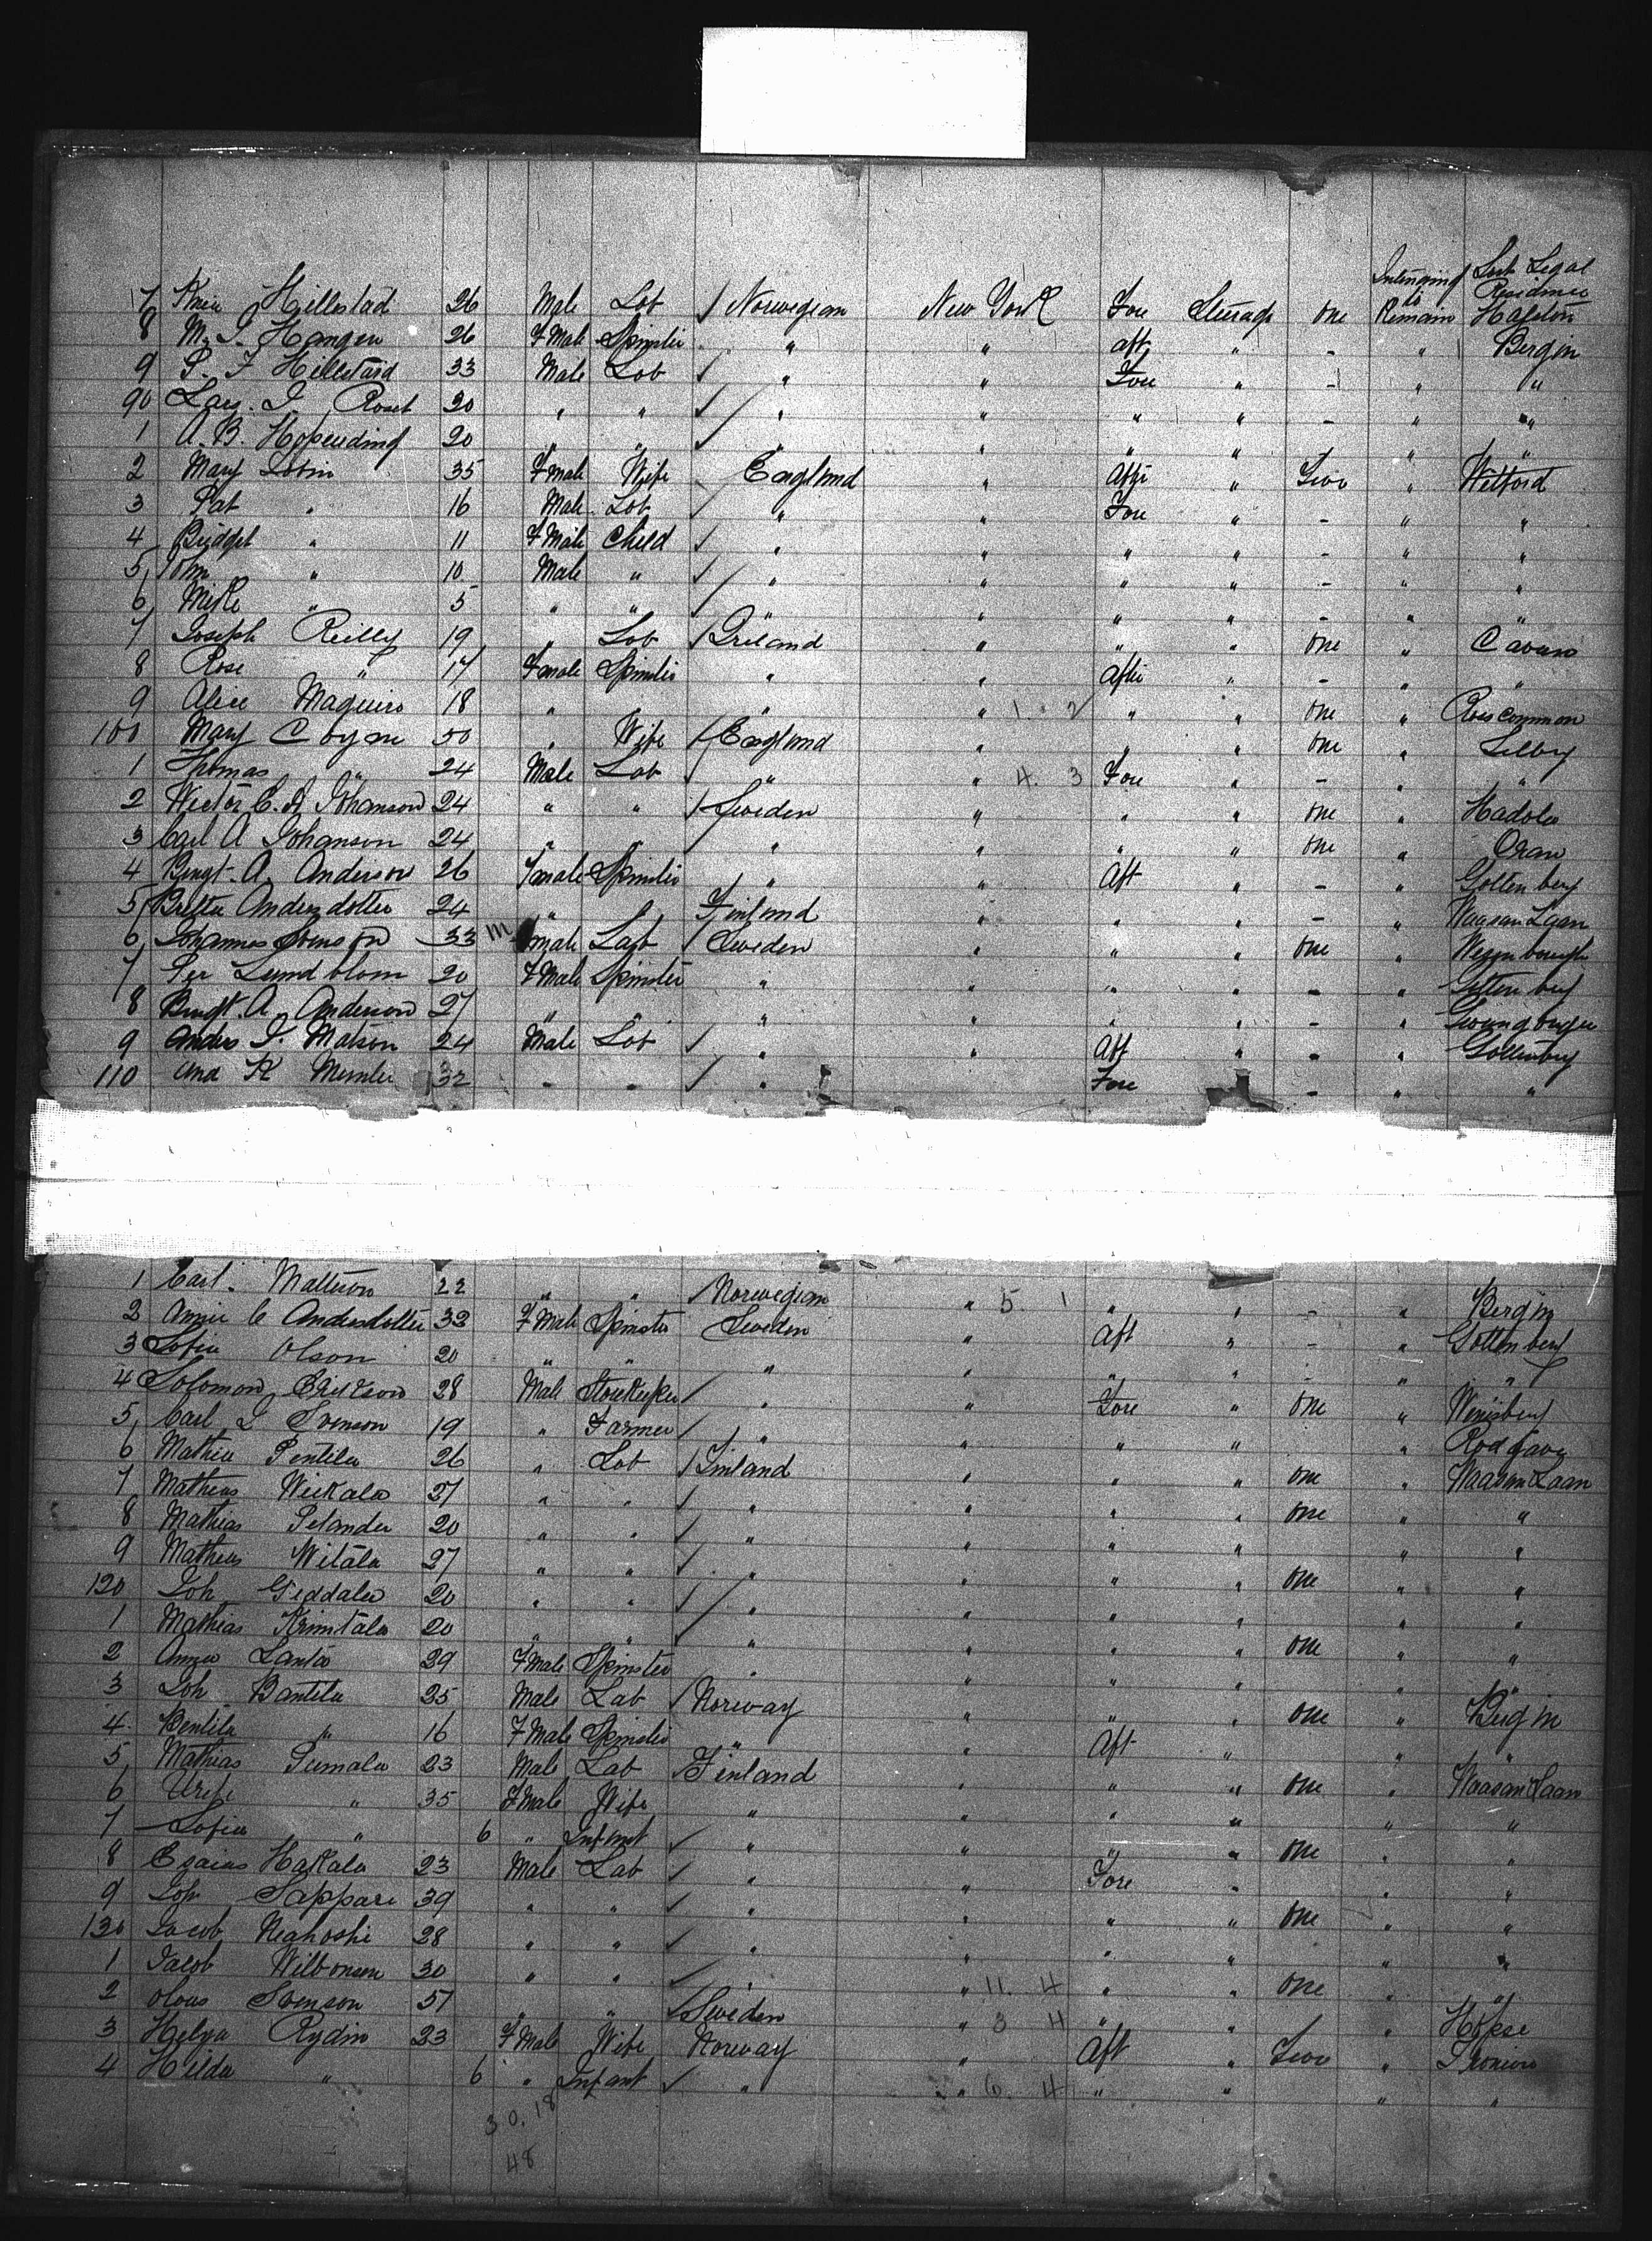 Intending to Remain Last Legal Residence
7 Hillestad 26 Male Lab / Norwegian New York Fore Steerage one
8 M. I. Hangen 26 Fmale Spinster " " aft " - " Bergin
9 P. I Hillestaid 33 Male Lab / " " Fore " - " "
90 Lars. I. Roset 20 " " / " " " " - " "
1 A. B. 20 " " / " " " " - " "
2 Mary 35 Fmale Wife England " Afte " Two "
3 Pat " 16 Male Lab / " " Fore " - " "
4 Bridget " 11 Fmale Child / " " " " - " "
5 John " 10 Male " / " " " " - " "
6 Mike " 5 " " / " " " " - " "
7 Joseph Reilly 19 " Lab / Ireland " " " one " Cavan
8 Rose " 17 Fmale Spinster " " Afte " - " "
9 Alice Maguire 18 " " " " 1. 2 " " one " Roscommon
100 Mary Coyne 50 " Wife / England " " " one "
1 Thomas " 24 Male Lab / " " 4. 3 Fore " - " "
2 Wictor C. A Johanson 24 " " / Sweden " " " one "
3 Carl A Johanson 24 " " / " " " " one "
4 Bengt. A. Anderson 26 Fmale Spinster " " Aft " - " Gottenberg
5 Britta Andersdotter 24 " " Finland " " " - " Waasan Laan
6 Johannes 33 m male Lab / Sweden " " " one "
7 Per Lundblom 20 Fmale Spinster " " " " - "
8 Bengt. A. Anderson 27 " " " " " " - "
9 Andes J. Matson 24 Male Lab / " " Aft " - " Gottenberg
110 K 32 " " / " Fore - " "
1 Carl. Matteson 22 " " / Norwegian " 5. 1 " " - " Bergin
2 Annie C Andersdotter 32 Fmale Spinster Sweden " Aft " - " Gottenberg
3 Sofia Olson 20 " " " " " " - " "
4 Solomon Erickson 28 Male Storekeeper / " " Fore " one "
5 Carl J Svenson 19 " Farmer / " " " " "
6 Mathew Pentila 26 " Lab / Finland " " " one " Waasan Laan
7 Mathias Wickala 27 " " / " " " " one " "
8 Mathias Pelander 20 " " / " " " " " "
9 Mathias Witala 27 " " / " " " " one " "
120 Joh 20 " " / " " " " " "
1 Mathias 20 " " / " " " " one " "
2 Anna Lanto 29 Fmale Spinster " " " " " "
3 Joh Bantila 25 Male Lab / Norway " " " one " Bergin
4 Bentila " 16 Fmale Spinster " " Aft " " "
5 Mathias Pumala 23 Male Lab / Finland " " " one " Waasan Laan
6 " 35 Fmale Wife " " " " " "
7 Sofia " 6 " Infant / " " " " one " "
8 Esaias Hakala 23 Male Lab / " " Fore " " "
9 Joh Sappari 39 " " / " " " " one " "
130 Jacob 28 " " / " " " " " "
1 Jacob 30 " " / " 11. 4 " " one " "
2 Olous Svenson 57 " " / Sweden " 3 4 " " "
3 Helga Rydin 23 Fmale Wife Norway " Aft " Two "
4 Hilda " 6 " Infant / " " 6. 4 " " " "
30. 18
48